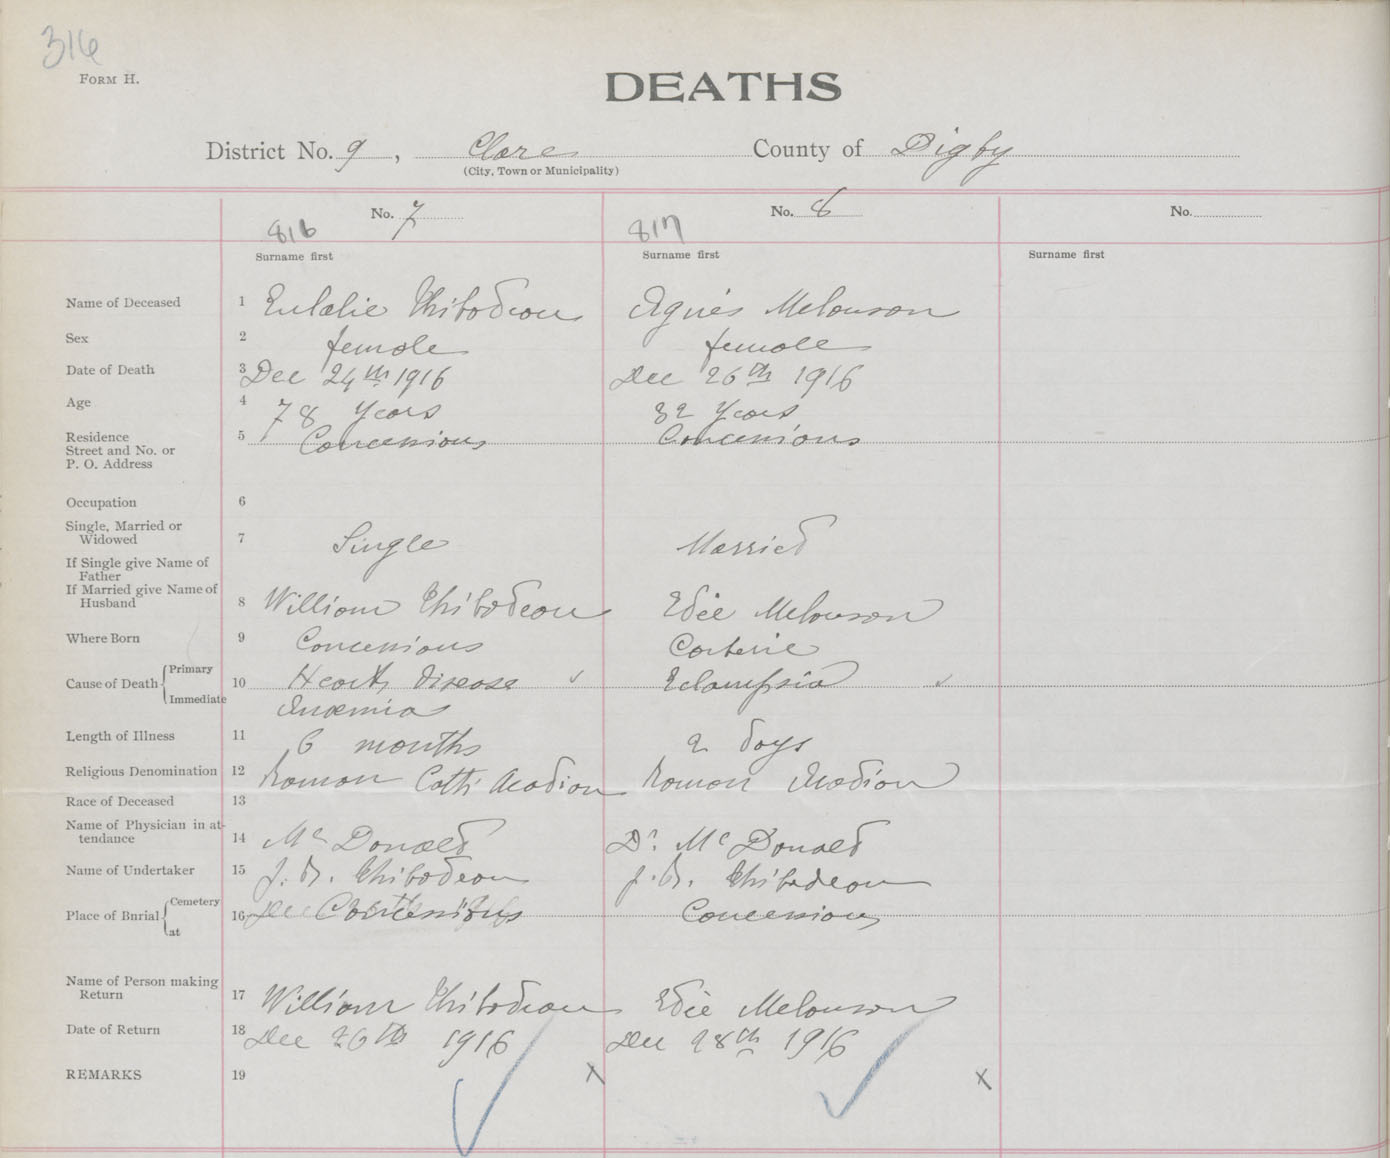 316
FORM H.
DEATHS
District No. 9, Clare County of Digby
(City, Town or Municipality)
No. 7 No. 8 No.
816 817
Surname first Surname first Surname first
Name of Deceased 1 Eulalie Thibodeau Agnés Melonson
Sex 2 female female
Date of Death 3 Dec 24th 1916 Dec 26th 1916
Age 4 78 Years 32 Years
Residence 5 Concessions Concessions
Street and No. or
P. O. Address
Occupation 6
Single, Married or
Widowed 7 Single Married
If Single give Name of
Father
If Married give Name of
Husband 8 William Thibodeau Edée Melonson
Where Born 9 Concessions Corberie
Cause of Death Primary 10 Heart disease Eclampsia
Immediate Anæmia
Length of Illness 11 6 months 2 days
Religious Denomination 12 Roman Cath Acadian Roman Acadian
Race of Deceased 13
Name of Physician in at-
tendance 14 Mc Donald Dr. Mc Donald
Name of Undertaker 15 J. B. Thibodeau J. B. Thibodeau
Place of Burial Cemetery 16 Concessions Concessions
at
Name of Person making
Return 17 William Thibodeau Edée Melonson
Date of Return 18 Dec 26th 1916 Dec 28th 1916
REMARKS 19 x x